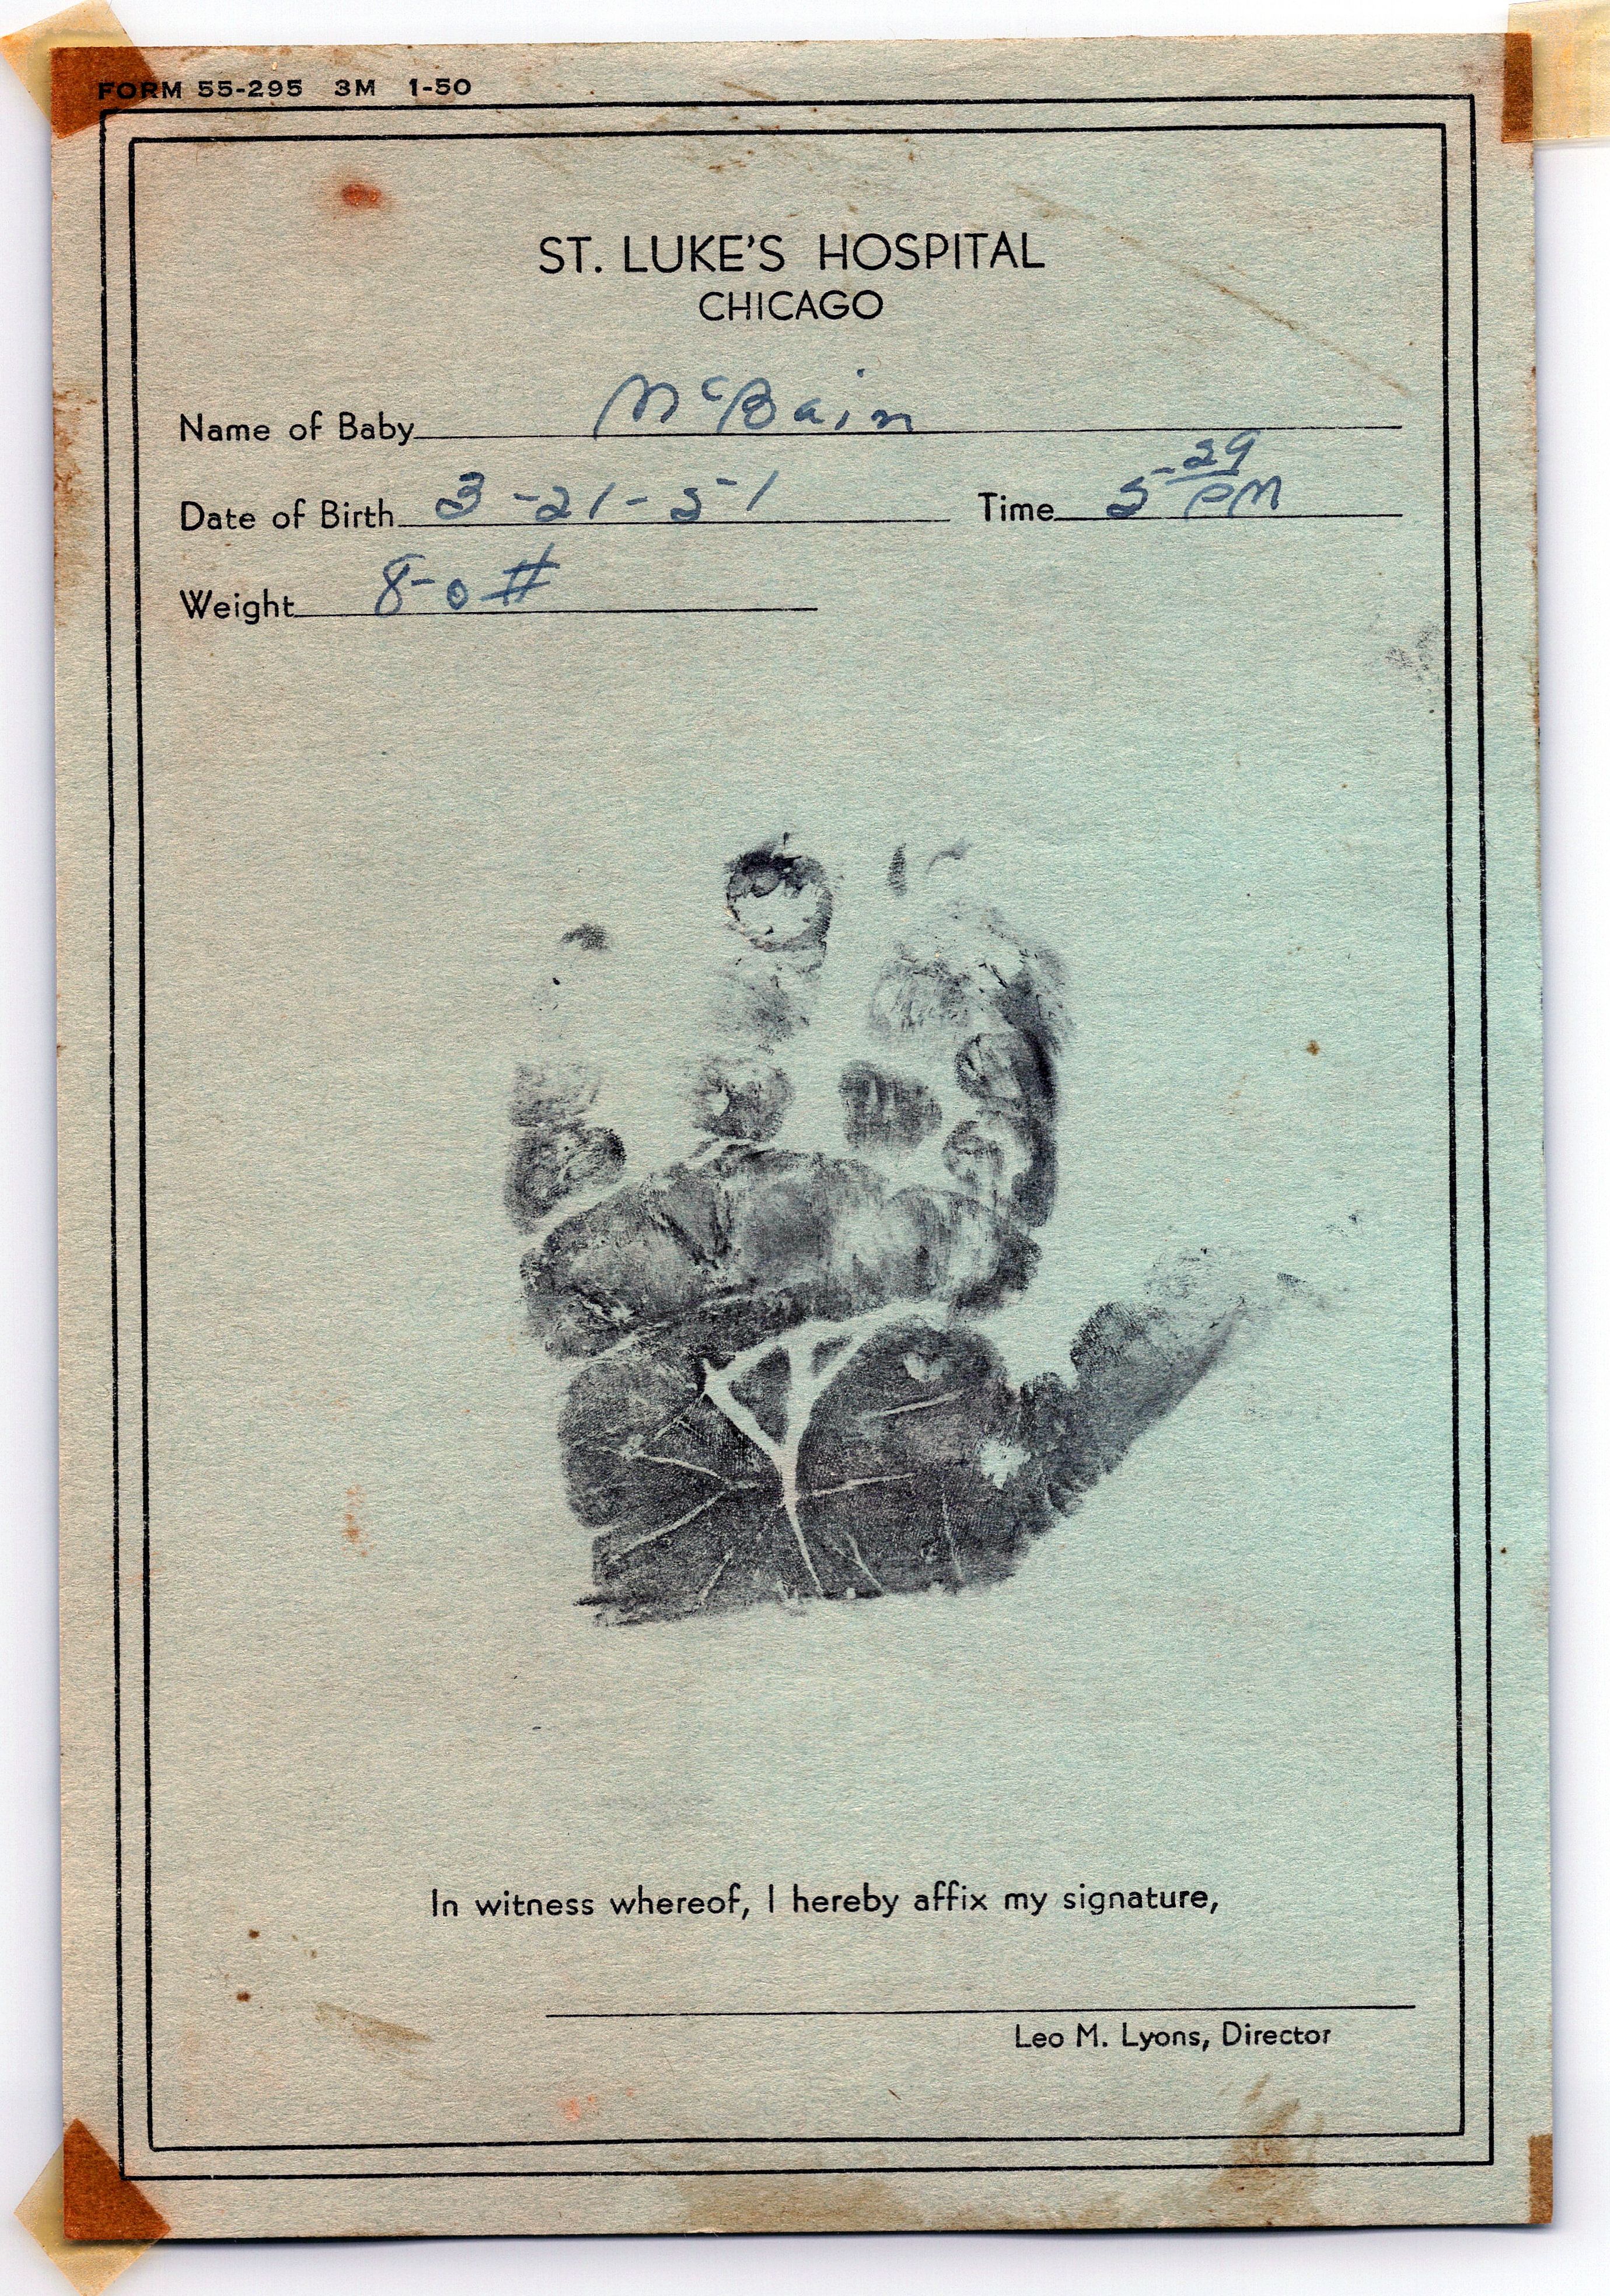 FORM 55-295 3M 1-50
ST. LUKE'S HOSPITAL
CHICAGO
Name of Baby McBain
Date of Birth 3-21-51 Time 5-29 PM
Weight 8-0#
In witness whereof, I hereby affix my signature,
Leo M. Lyons, Director